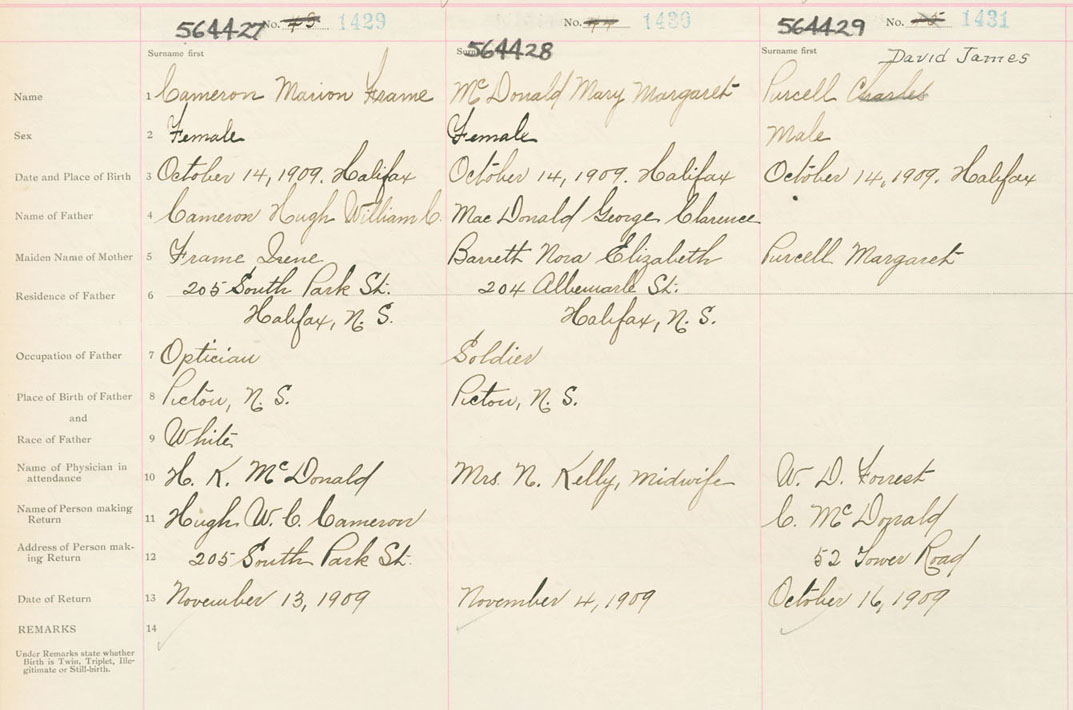 564427 No. 43 1429 564428 No. 44 1430 564429 No. 45 1431
Surname first Surname first Surname first David James
Name 1 Cameron Marion Frame McDonald Mary Margaret Purcell Charles
Sex 2 Female Female Male
Date and Place of Birth 3 October 14, 1909. Halifax October 14, 1909. Halifax October 14, 1909. Halifax
Name of Father 4 Cameron Hugh William C. Mac Donald George Clarence
Maiden Name of Mother 5 Frame Irene Barrett Nora Elizabeth Purcell Margaret
Residence of Father 6 205 South Park St. 204 Albemarle St.
Halifax, N. S. Halifax, N. S.
Occupation of Father 7 Optician Soldier
Place of Birth of Father 8 Pictou, N. S. Pictou, N. S.
and
Race of Father 9 White
Name of Physician in
attendance 10 H. K. McDonald Mrs. N. Kelly, midwife W. D. Forrest
Name of Person making
Return 11 Hugh W. C. Cameron C. McDonald
Address of Person mak-
ing Return 12 205 South Park St. 52 Tower Road
Date of Return 13 November 13, 1909 November 4, 1909 October 16, 1909
REMARKS 14
Under Remarks state whether
Birth is Twin, Triplet, Ille-
gitimate or Still-birth.